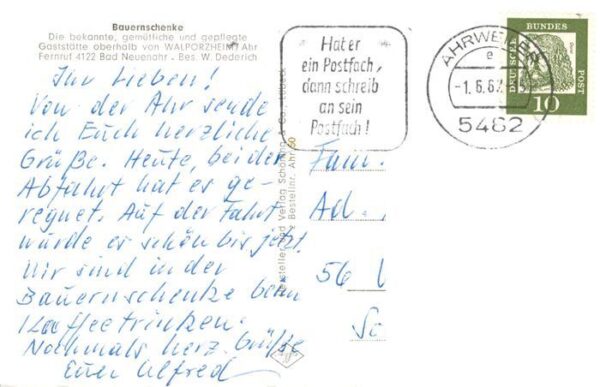 Bauernschenke
Die bekannte, gemütliche und gepflegte
Gaststätte oberhalb von WALPORZHEIM/Ahr
Fernruf 4122 Bad Neuenahr - Bes. W. Dederich
Ihr Lieben!
Von der Ahr sende
ich Euch herzliche
Grüße. Heute, bei der
Abfahrt hat es ge-
regnet. Auf der Fahrt
wurde es schön bis jetzt.
Wir sind in der
Bauernschenke beim
Kaffeetrinken.
Nochmals herz. Grüße
Euer Alfred
Hersteller und Verlag Schöning & Co., Lübeck
Bestellnr. Ahr 50
Hat er
ein Postfach,
dann schreib
an sein
Postfach!
AHRWEILER
e
-1.6.62
5482
DEUTSCHE
BUNDES
POST
10
Fam.
Ad.
56